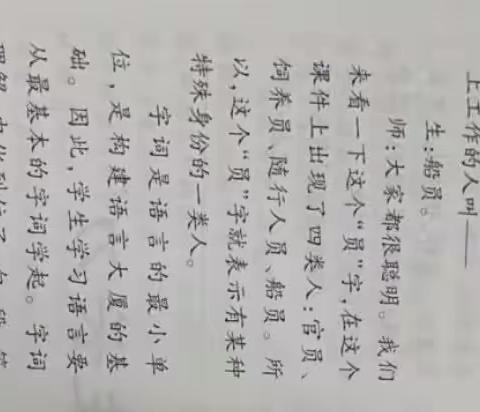 上工作的人叫——
生：船员。
师：大家都很聪明。我们
来看一下这个“员”字，在这个
课件上出现了四类人：官员、
饲养员、随行人员、船员。所
以，这个“员”字就表示有某种
特殊身份的一类人。
字词是语言的最小单
位，是构建语言大厦的基
础。因此，学生学习语言要
从最基本的字词学起。字词